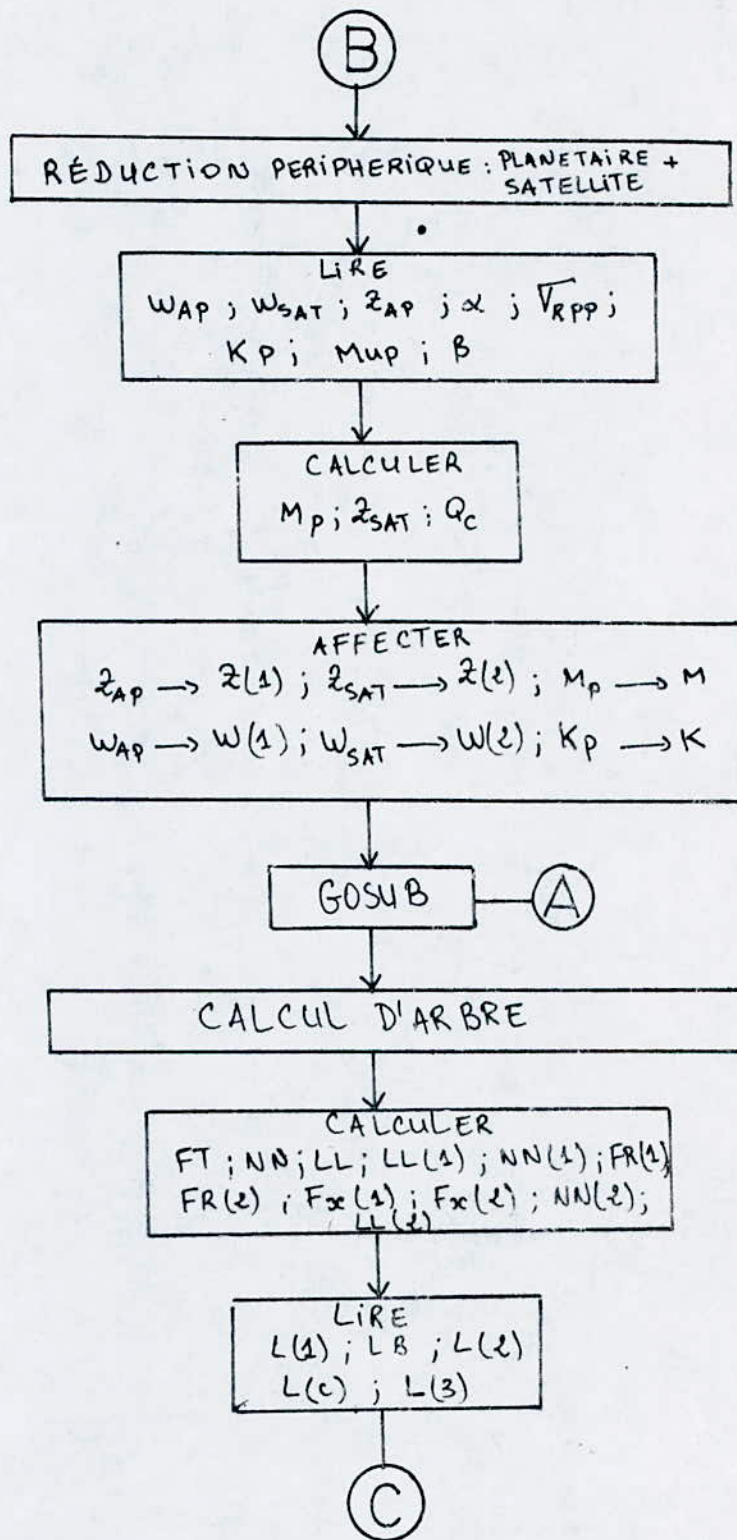 B
RÉDUCTION PERIPHERIQUE : PLANETAIRE +
SATELLITE
LIRE
WAP ; WSAT ; ZAP ; α ; √RPP ;
KP ; MUP ; β
CALCULER
MP ; ZSAT ; QC
AFFECTER
ZAP → Z(1) ; ZSAT → Z(2) ; MP → M
WAP → W(1) ; WSAT → W(2) ; KP → K
GOSUB A
CALCUL D'ARBRE
CALCULER
FT ; NN ; LL ; LL(1) ; NN(1) ; FR(1)
FR(2) ; Fx(1) ; Fx(2) ; NN(2) ;
LL(2)
LIRE
L(1) ; LB ; L(2)
L(C) ; L(3)
C